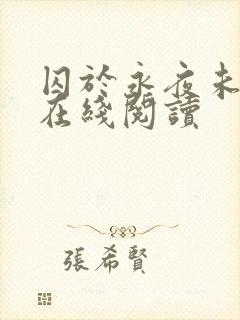 囚於永夜未
在綫閱讀
張希賢